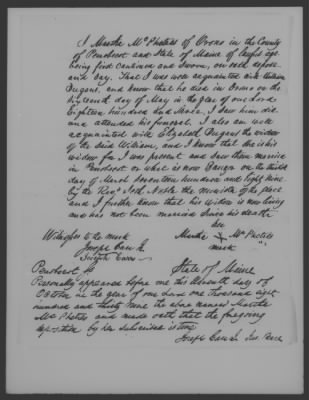 I Martha McPhetres of Orono in the County
of Penobscot and State of Maine of lawful age
being first cautioned and sworn, on oath depose
and say. That I was well acquainted with William
Dugans, and know that he died in Orono on the
day of May in the year of our Lord
Eighteen hundred and twelve. I saw him die
and attended his funeral. I also am well
acquainted with Elizabeth Dugans the widow
of the said William, and I know that she is his
widow for I was present and saw them married
in Penobscot or what is now Bangor on the third
day of March Seventeen hundred and Eighty nine
by the Revd Seth Noble the minister of the place
and I further know that his Widow is now living
and has not been married since his death
her
Witness to the mark Martha X McPhetres
Joseph Carr Jr. mark
Joseph
Penobscot ss State of Maine
Personally appeared before me this Eleventh day of
October in the year of our Lord one thousand eight
hundred and thirty nine the above named Martha
McPhetres and made oath that the foregoing
deposition by her subscribed is true
Joseph Carr Jr. Jus. Peace